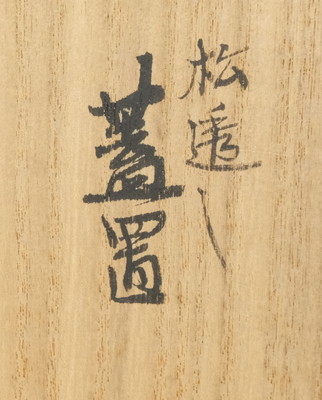 松透し
蓋置